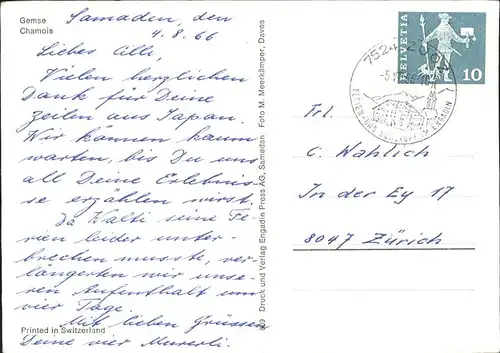 Gemse
Chamois
Samaden, den
4.8.66
Liebes Cilli,
Vielen herzlichen
Dank für Deine
Zeilen aus Japan.
Wir können kaum
warten, bis Du uns
all Deine Erlebnis-
se erzählen wirst.
Da Walti seine Fe-
rien leider unter-
brechen musste, ver-
längerten wir unse-
ren Aufenthalt um
vier Tage.
Mit lieben Grüssen
Deine vier
Printed in Switzerland
Druck und Verlag Engadin Press AG, Samedan Foto M. Meerkämper, Davos
7524 ZUOZ
HELVETIA
10
Frl.
C. Wahlich
In der Ey 17
8047 Zürich